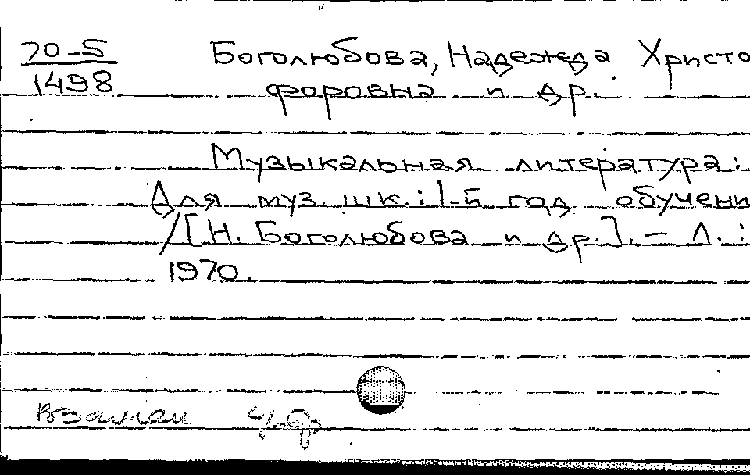 70-5 Боголюбова, Надежда Христо
1498 форовна и др.
Музыкальная литература:
Для муз. шк.: 1-5 год обучени
/[Н. Боголюбова и др.]. - Л.:
1970.